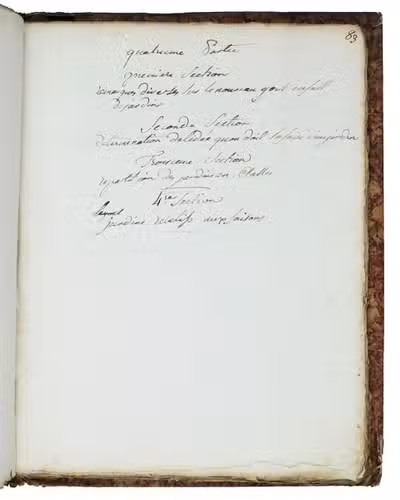 83
quatrieme Partie
premiere Section
remarques diverses sur le nouveau gout en fait
de jardins
Seconde Section
determination de lidée quon doit se faire dun jardin
Troisieme Section
repartition des jardins en Classes
4me Section
jardins relatifs aux saisons